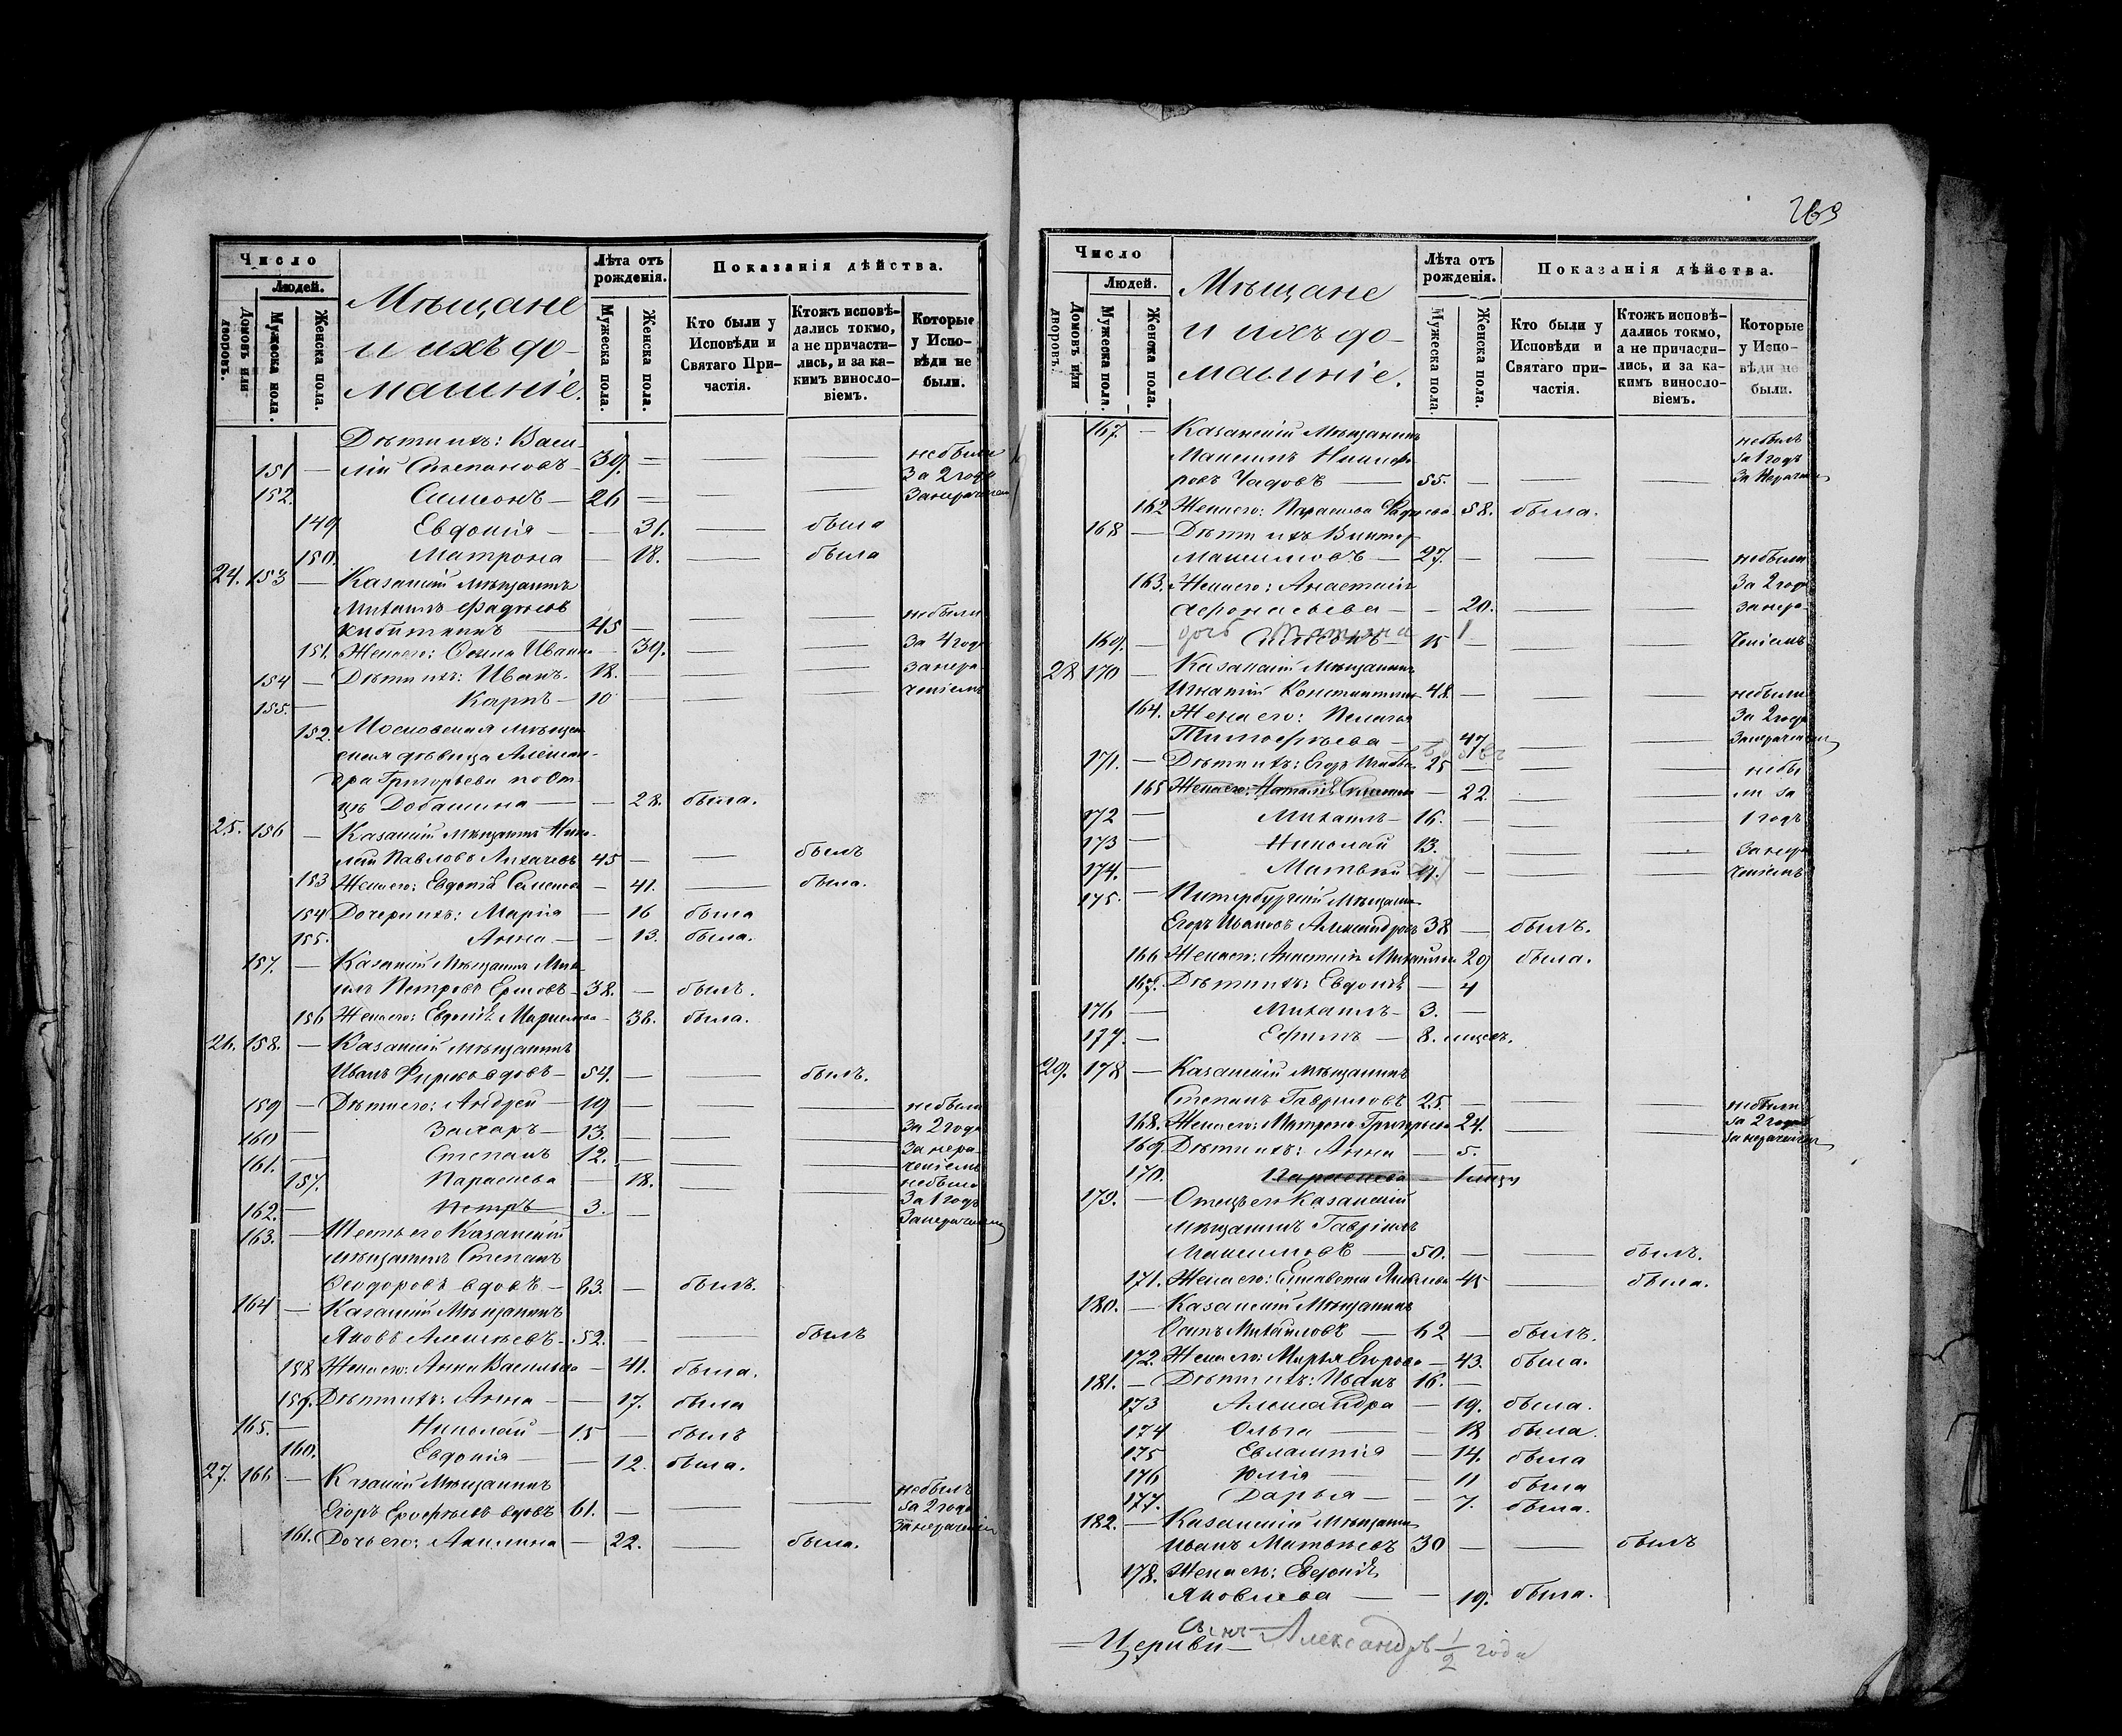 263
Число
Людей.
Домовъ или дворовъ.
Мужеска пола.
Женска пола.
Мѣщане
и ихъ до-
машніе.
Лѣта отъ рожденія.
Мужеска пола.
Женска пола.
Показанія дѣйства.
Кто были у Исповѣди и Святаго Причастія.
Ктожъ исповѣдались токмо, а не причастились, и за какимъ винословіемъ.
Которые у Исповѣди не были.
Дѣти ихъ: Васи-
151 — лій Степановъ — 39. — небыли
за 2 года
152. Симеонъ — 26 — за нерачен
149 Евдокія — 31. — была
150. Матрона — 18. — была
24. 153 — Казанскій мѣщанинъ
Михаилъ Фадѣевъ
45 — небыли
151. Жена его: Осипа Иван — 39. за 4 года
154 — Дѣти ихъ: Иванъ. 18. — занера-
155. — Карпъ — 10 — ченіемъ
152. Московская мѣщан
ская дѣвица Алексан-
дра Григорьева по от-
цѣ Добашина — 28. была.
25. 156 — Казанскій мѣщанинъ Нико-
лай Павловъ Лихачевъ 45 — былъ
153 Жена его: Евдокія Семенова — 41. — была.
154 Дочери ихъ: Марія — 16 была
155. Анна — 13. была.
157. — Казанскій мѣщанинъ Миха-
илъ Петровъ Ершовъ — 38. — былъ.
156 Жена его: Евдокія — 38. была.
26. 158. — Казанскій мѣщанинъ
Иванъ вдовъ — 54. — былъ.
159 — Дѣти его: Андрей — 19 — небыли
160 — Захаръ — 13. — за 2 года
161. — Степанъ 12. — занера-
ченіемъ
157. Параскева — 18. — небыла
за 1 годъ
162. — Петръ — 3. — занерачен
163. — Тесть его Казанскій
мѣщанинъ Степанъ
Ѳеодоровъ вдовъ — 83. — былъ.
164 — Казанскій мѣщанинъ
Яковъ Алексѣевъ — 52. — былъ
158 Жена его: Анна Васильева — 41. была.
159. Дѣти ихъ: Анна — 17. была
165. — Николай — 15 — былъ
160. Евдокія — 12. была.
27. 166 — Казанскій мѣщанинъ
Егоръ Ерофѣевъ вдовъ 61. — небылъ
за 2 года
занерачені
161. Дочь его: Акилина — 22. — была.
Число
Людей.
Домовъ или дворовъ.
Мужеска пола.
Женска пола.
Мѣщане
и ихъ до-
машніе.
Лѣта отъ рожденія.
Мужеска пола.
Женска пола.
Показанія дѣйства.
Кто были у Исповѣди и Святаго причастія.
Ктожъ исповѣдались токмо, а не причастились, и за какимъ винословіемъ.
Которые у Исповѣди не были.
167. — Казанскій мѣщанинъ
Максимъ Никифо
ровъ Чадовъ — 55. — небылъ
за 1 годъ
162 Жена его: Параскева — 58. была.
168 — Дѣти ихъ Викторъ
Максимовъ — 27. — небыли
163. Жена его: Анастасія за 2 года
Афонасьева — 20. — занера-
дочь Татьяна 1
169. — 15 — ченіемъ
28 170 — Казанскій мѣщанинъ
Игнатій Константинов 48. — небыли
164. Жена его: Пелагея за 2 года
Тимофѣева — 47 — занерачені
171. — Дѣти ихъ: Егоръ 25 — небы
165 Жена его: Наталія — 22. — ли за
172 — Михаилъ — 16. — 1 годъ
173 — Николай 13. — занера
174. — Матвѣй — ченіемъ
175. — Питербургскій мѣщанин
Егоръ Ивановъ Александровъ 38 — былъ.
166 Жена его: Анастасія Михайлова 29 была.
167. Дѣти ихъ: Евдокія — 4
176 — Михаилъ — 3. —
177. — Ефимъ — 8. мцесъ.
29. 178 — Казанскій мѣщанинъ
Степанъ Гавриловъ 25. — небыли
168. Жена его: Матрона Григорьева 24. — за 2 года
169. Дѣти ихъ: Анна — 5. занераченіем
170. Параскева — 1 мцъ
179. — Отецъ его Казанскій
мѣщанинъ Гавріилъ
Максимовъ — 50. — былъ.
171. Жена его: Елисавета Яковлева 45 — была.
180. — Казанскій мѣщанинъ
Осипъ Михайловъ — 62 — былъ.
172. Жена его: Марья Егорова — 43. была.
181. — Дѣти ихъ: Иванъ 16. —
173 Александра — 19. была.
174 Ольга — 18 была.
175 Евлампія — 14. была
176 Юлія — 11 была
177. Дарья — 7. была.
182. — Казанскій мѣщанин
Иванъ Матвѣевъ 30 — былъ
178. Жена его: Евдокія
Яковлева — 19. была.
сынъ Александръ 1/2 года
— Церкви —